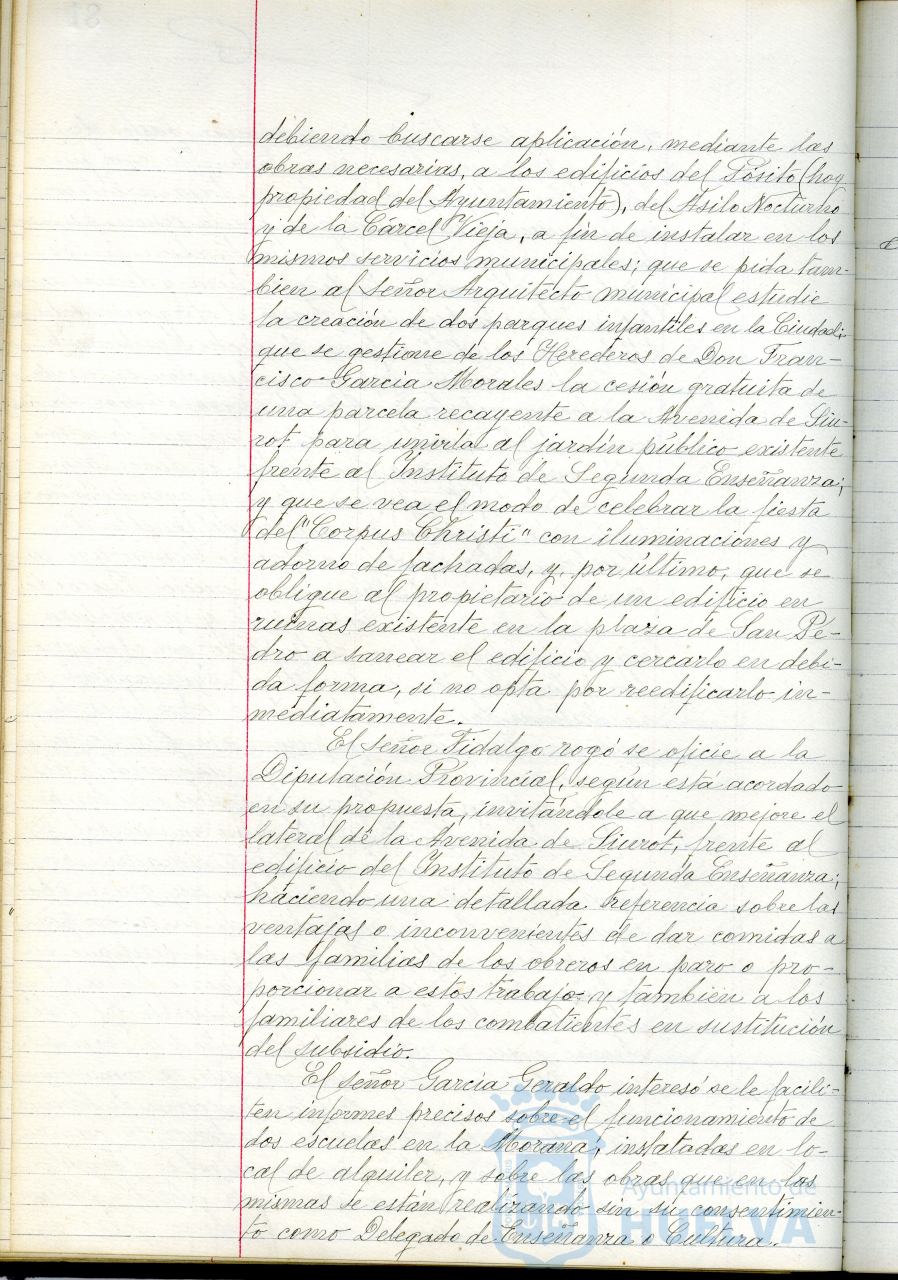 debiendo buscarse aplicación, mediante las
obras necesarias, a los edificios del Pósito (hoy
propiedad del Ayuntamiento), del Asilo Nocturno
y de la Cárcel Vieja, a fin de instalar en los
mismos servicios municipales; que se pida tam-
bien al Señor Arquitecto municipal estudie
la creación de dos parques infantiles en la Ciudad;
que se gestione de los Herederos de Don Fran-
cisco García Morales la cesión gratuita de
una parcela recayente a la Avenida de Siu-
rot para unirla al jardín público existente
frente al Instituto de Segunda Enseñanza;
y que se vea el modo de celebrar la fiesta
del "Corpus Christi" con iluminaciones y
adorno de fachadas, y, por último, que se
obligue al propietario de un edificio en
ruinas existente en la plaza de San Pe-
dro a sanear el edificio y cercarlo en debi-
da forma, si no opta por reedificarlo in-
mediatamente.
El señor Fidalgo rogó se oficie a la
Diputación Provincial, según está acordado
en su propuesta, invitándole a que mejore el
lateral de la Avenida de Siurot, frente al
edificio del Instituto de Segunda Enseñanza;
haciendo una detallada referencia sobre las
ventajas o inconvenientes de dar comidas a
las familias de los obreros en paro o pro-
porcionar a estos trabajo, y tambien a los
familiares de los combatientes en sustitución
del subsidio.
El señor García Geraldo interesó se le facili-
ten informes precisos sobre el funcionamiento de
dos escuelas en la Morana, instatadas en lo-
cal de alquiler, y sobre las obras que en las
mismas se están realizando sin su consentimien-
to como Delegado de Enseñanza o Cultura.
Ayuntamiento de
HUELVA